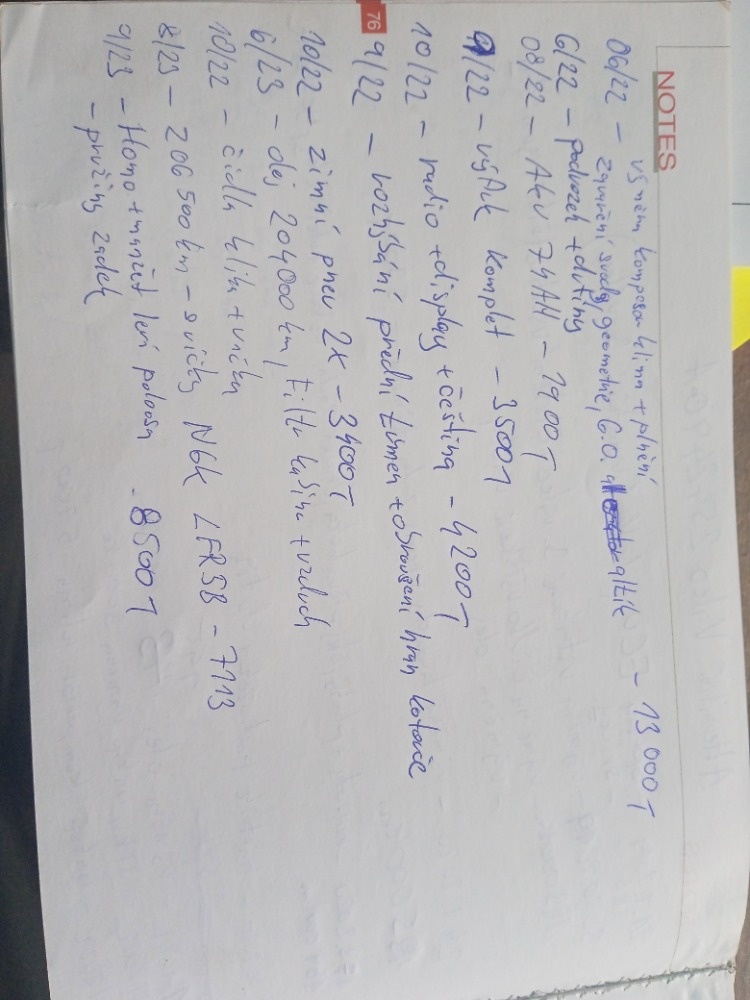 NOTES
06/22 - výměna kompresor klima + plnění
zaměření svody, geometrie, G.O. - 13 000
6/22 - podvozek + dutiny
08/22 - Aku 74AH - 1900
9/22 - výfuk komplet - 3500
10/22 - radio + display + čeština - 4200
76
9/22 - rozhýbání přední třmen + obroušení hran kotouče
10/22 - zimní pneu 2x - 3400
6/23 - olej 204000 km, filtr kabina + vzduch
10/22 - čidla klika + vačka
8/23 - 206 500 km - svíčky NGK LFR5B - 7113
9/23 - Homo + manžet levá poloosa - 8500
- pružiny zadek